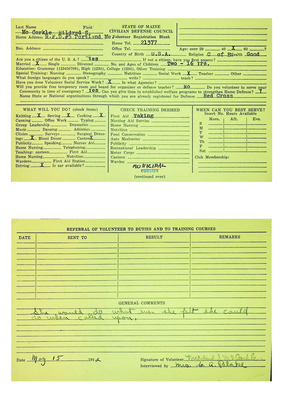 Last Name First STATE OF MAINE
Mc Corkle Mildred S. CIVILIAN DEFENSE COUNCIL
Home Address Portland Me Volunteer Registration Blank
Home Tel. 21377
Bus. Address Office Tel. Age: over 20 40 X 60 ?
Country of Birth U.S.A. Religion Good
Are you a citizen of the U. S. A.? Yes If not a citizen, have you first papers?
Married X Single Divorced No. and Ages of Children Two - 16 yrs.
Education: Grammar High College Other Training
Special Training: Nursing Stenography Nutrition Social Work X Teacher Other
What foreign languages do you speak? teach?
Have you done Volunteer Service Work? X In what Agencies?
Will you provide free temporary room and board for organizer or defense teacher? NO Do you volunteer to serve your
Community in time of emergency? yes Can you give time to establish welfare programs to strengthen Home Defense? Y
Name State or National organizations through which you are already registered for Defense Red Cross
WHAT WILL YOU DO? (check items)
Knitting X Sewing X Cooking X
Canning Office Work Typing
Group Leadership Dramatics
Music Dancing Athletics
Clinics Surveys Surgical Dress-
ings X Blood Donor Canteen X
Publicity Speaking Nurses Aid
Home Nursing Telephoning
Teaching: canteen First Aid
Home Nursing Nutrition
Wardens First Aid Station
Driving X Is car available?
CHECK TRAINING DESIRED
First Aid Taking
Nursing Aid Service
Home Nursing
Nutrition
Food Conservation
Auto Mechanics
Publicity
Recreational Leadership
Motor Corps
Canteen
Warden
(continued over)
WHEN CAN YOU BEST SERVE?
Insert No. Hours Available
Morn. Aft. Eve.
M
T
W
Th
F
Sat
Club Membership:
REFERRAL OF VOLUNTEER TO DUTIES AND TO TRAINING COURSES
DATE SENT TO RESULT REMARKS
GENERAL COMMENTS
She would do what ever she felt she could
do when called upon.
Date May 15 194 Signature of Volunteer
Interviewed by Mrs. C. A.